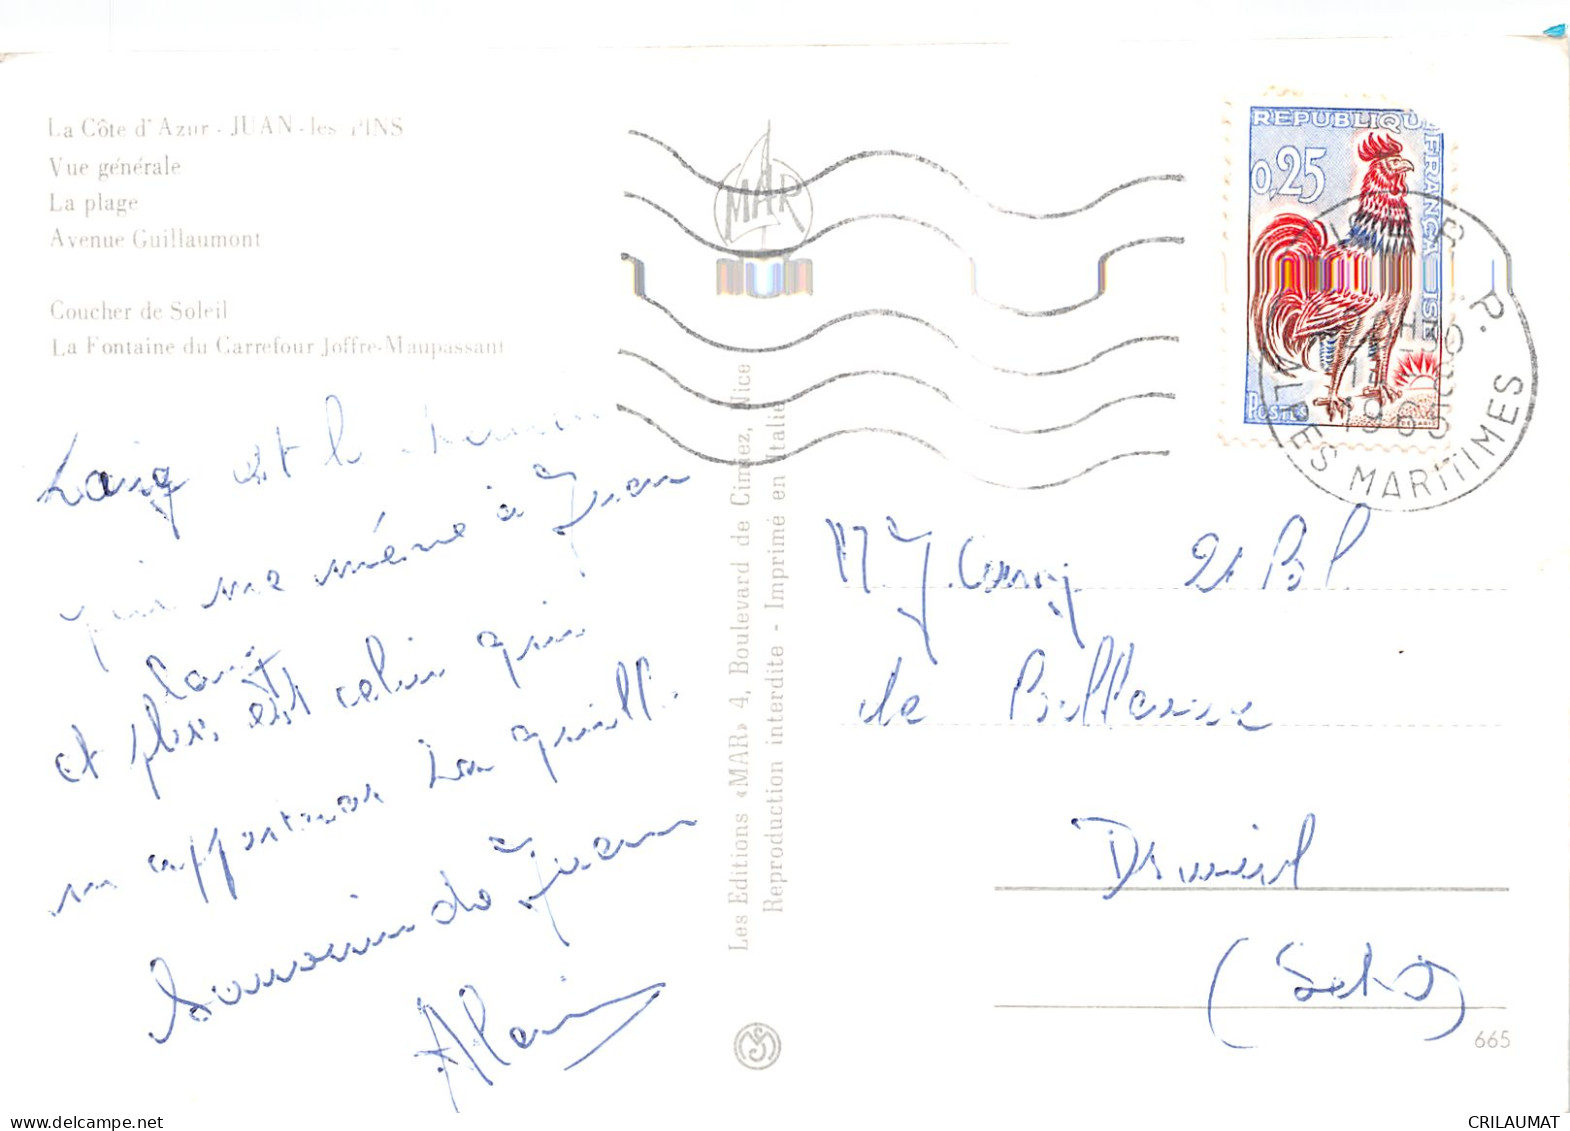 La Côte d'Azur - JUAN-les-PINS
Vue générale
La plage
Avenue Guillaumont
Coucher de Soleil
La Fontaine du Carrefour Joffre-Maupassant
Long est le chemin
qui me mène à Juan
et plus long est celui qui
m'apporteras la quille
Souvenir de Juan
Alain
Les Editions «MAR» 4, Boulevard de Cimiez, Nice
Reproduction interdite - Imprimé en Italie
MAR
REPUBLIQUE FRANÇAISE
0,25
POSTES
ALPES MARITIMES
1965
M J.
de Bellevue
Draveil
(
665
CRILAUMAT